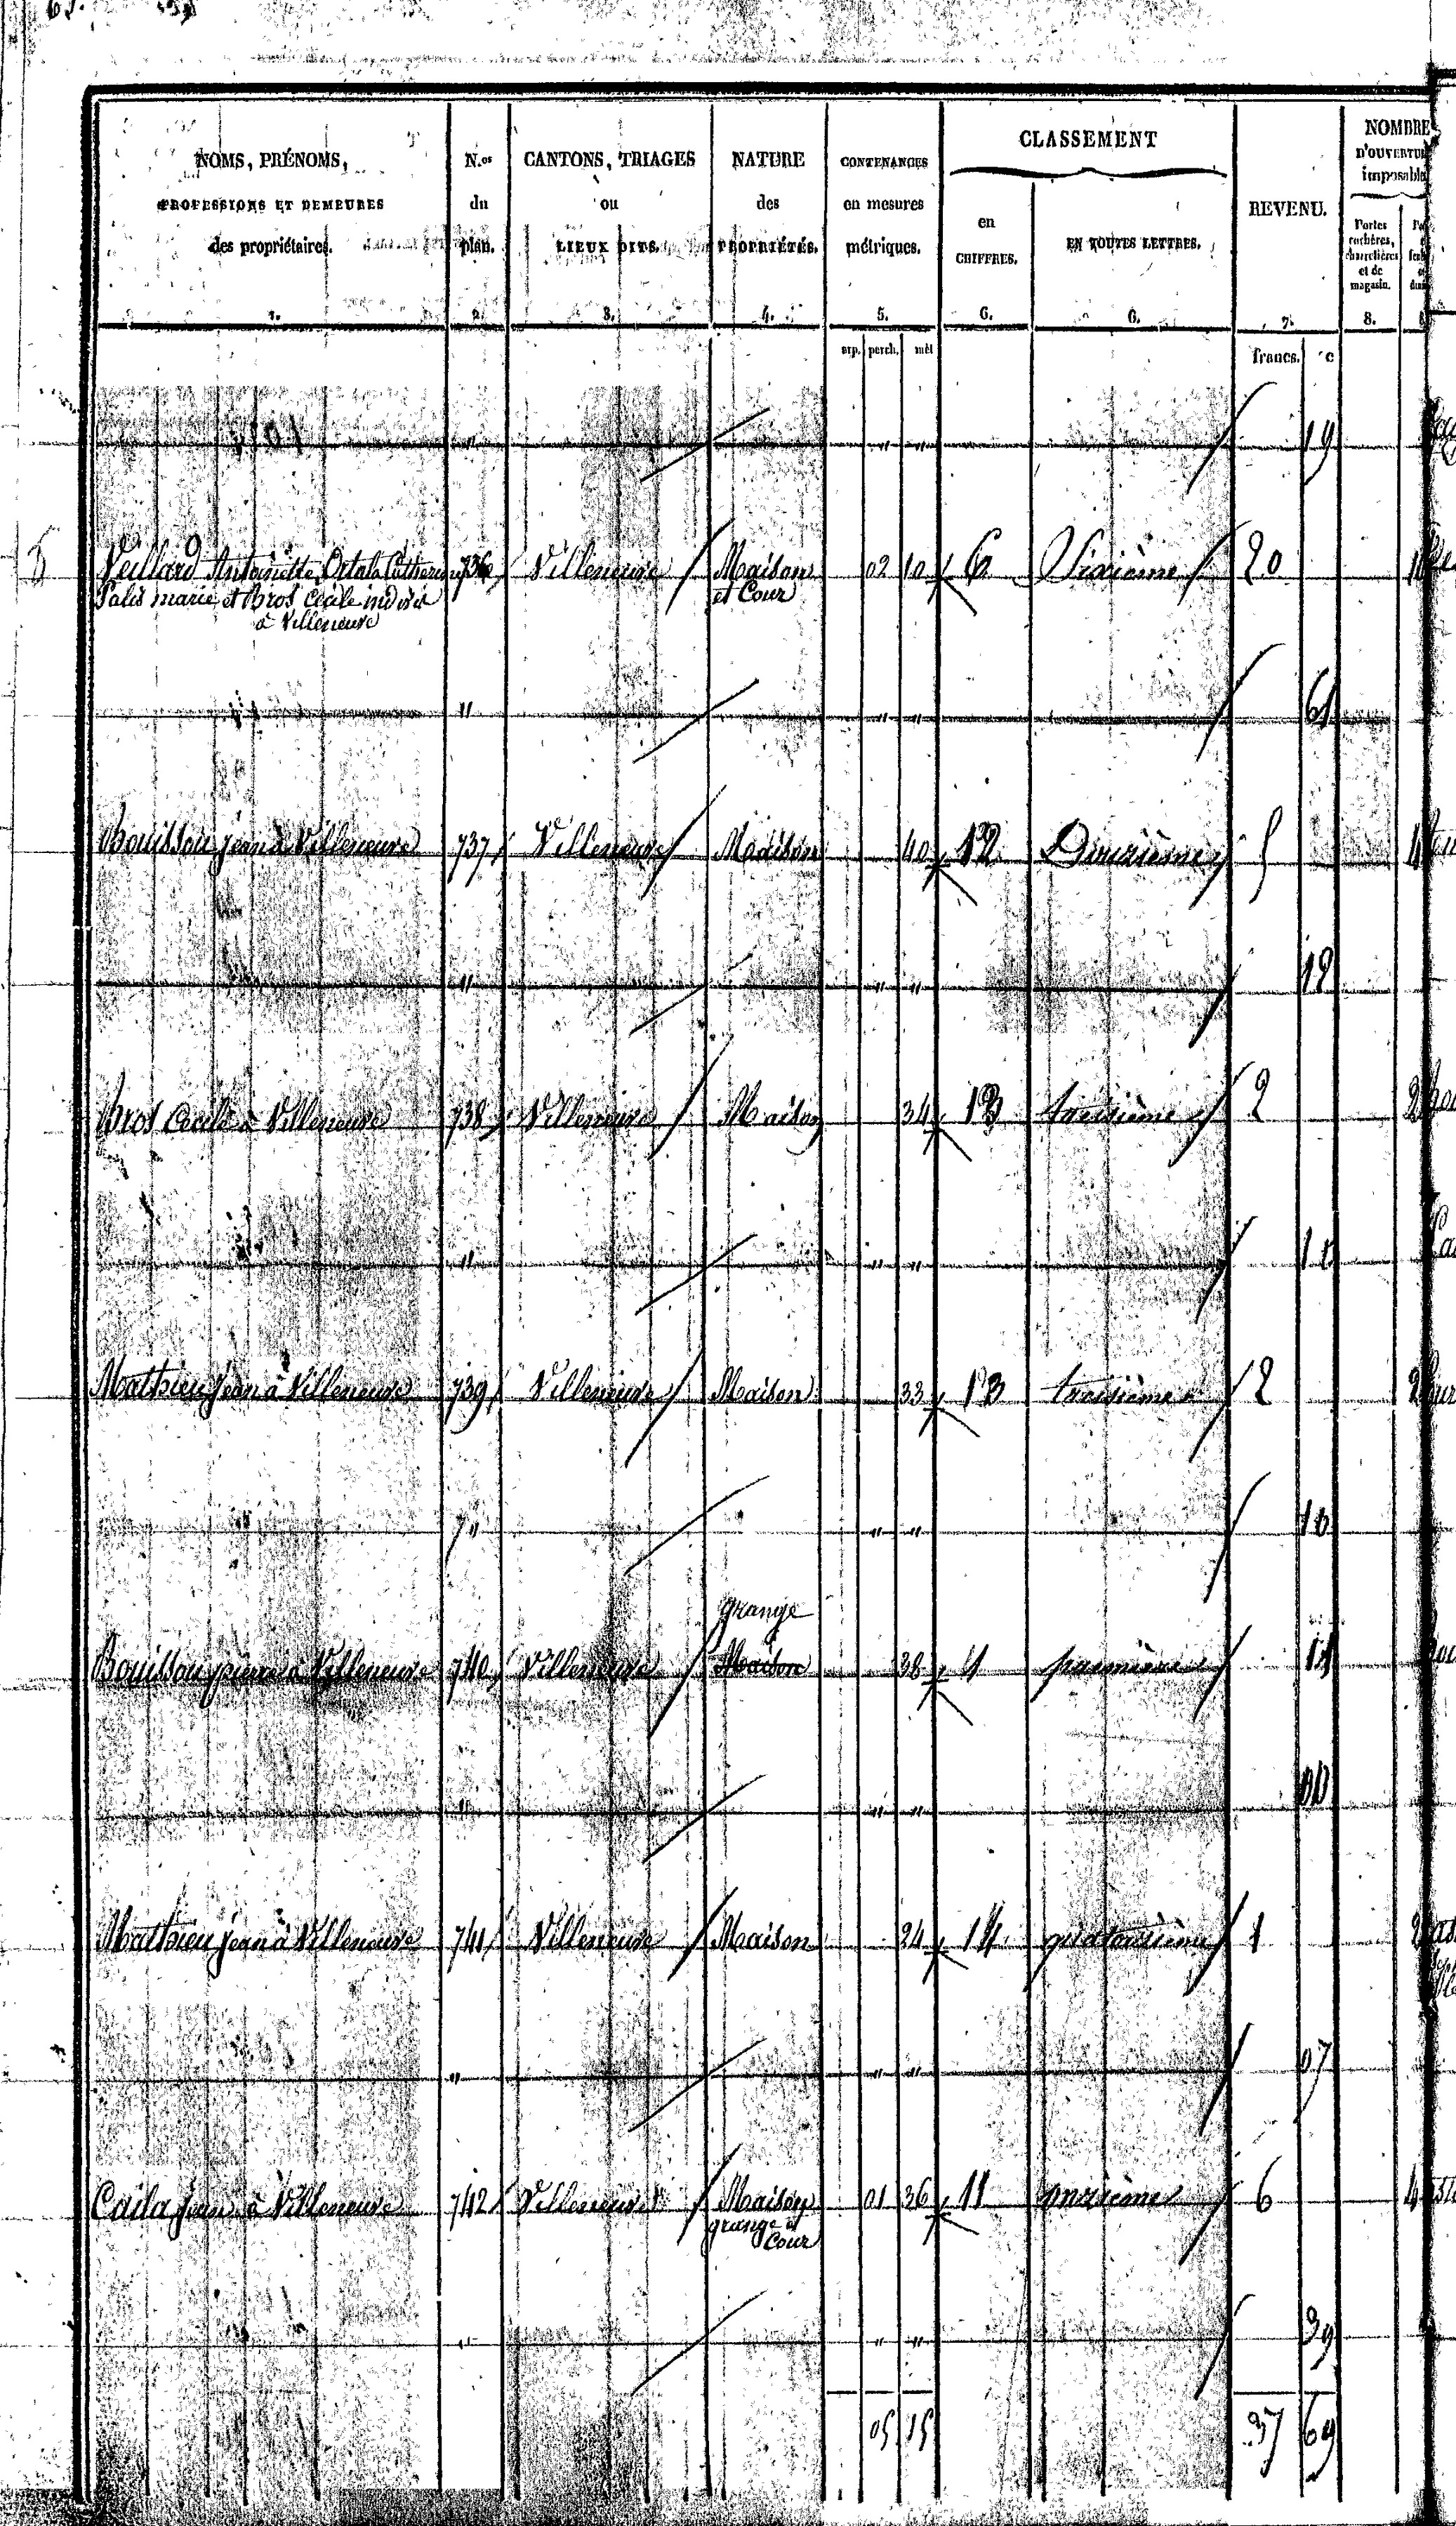 NOMS, PRÉNOMS, PROFESSIONS ET DEMEURES des propriétaires. 1.
N.os du plan. 2.
CANTONS, TRIAGES ou LIEUX DITS. 3.
NATURE des PROPRIÉTÉS. 4.
CONTENANCES en mesures métriques. 5. arp. perch. mèt
CLASSEMENT
en CHIFFRES. 6.
EN TOUTES LETTRES. 6.
REVENU. 7. francs. c
NOMBRE D'OUVERTU imposable
Portes cochères, charretières et de magasin. 8.
" " " 19
Veillard Antoinette, Ortala Catherine 736 Villeneuve Maison 02 10 6 Sixième 20
Palis marie et Bros Cecile indivis et Cour
à Villeneuve
" " " 61
Bouissou jean à Villeneuve 737 Villeneuve Maison 40 12 Douzième 5
" " " 12
Bros Cecile à Villeneuve 738 Villeneuve Maison 34 13 treisième 2 2
" " " 10
Mathieu jean à Villeneuve 739 Villeneuve Maison 33 13 treisième 2 2
" " " 10
grange
Bouissou pierre à Villeneuve 740 Villeneuve Maison 38 1 premiere
" " "
Mathieu jean à Villeneuve 741 Villeneuve Maison 24 14 quatorsième 1 2
" " " 07
Caila Jean à Villeneuve 742 Villeneuve Maison 01 36 11 onzième 6 4
grange et
Cour
" " " 39
05 15 37 69